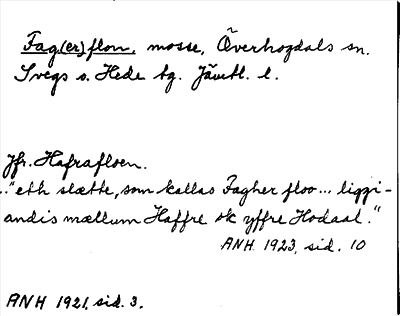 Fag(er)flon, mosse, Överhogdals sn.
Svegs o. Hede tg. Jämtl. l.
Jfr. Hafrafloen.
.."eth slætte, som kallas Fagher floo... liggi-
andis mællum Haffre ok yffre Hodaal."
ANH 1923, sid. 10
ANH 1921, sid. 3.